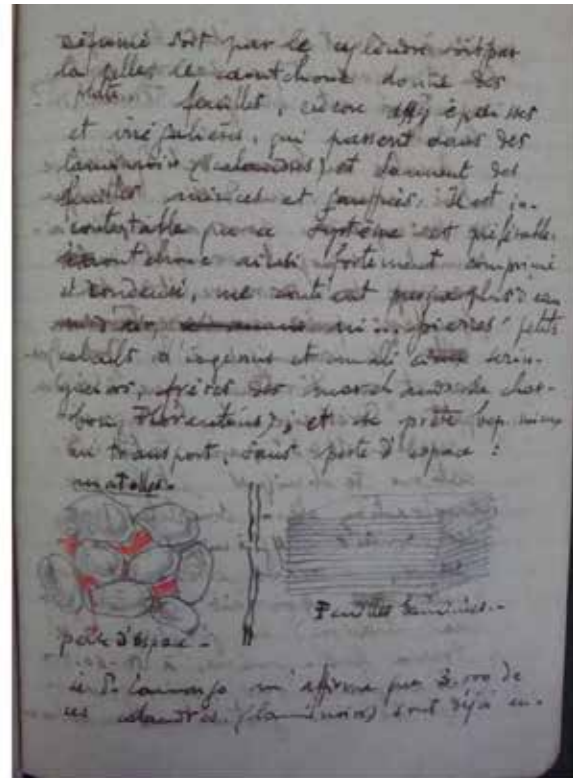 soit par le cylindre soit par
la le caoutchouc donne des
feuilles, encore épaisses
et irrégulières, qui passent dans des
laminoirs (calandres) et donnent des
feuilles minces et gaufrées. Il est in-
contestable que ce système est préférable.
caoutchouc ainsi fortement comprimé
et condensé, ne contient presque plus d'eau
ni d'air, ni pierres petits
d'ingénus et serin-
gueiros, frères des marchands de char-
bon ; et se prête bcp. mieux
au transport, sans perte d'espace :
perte d'espace -
Feuilles laminées. -
le Dr Camargo m'affirme que 3.000 de
ces calandres (laminoirs) sont déjà en-